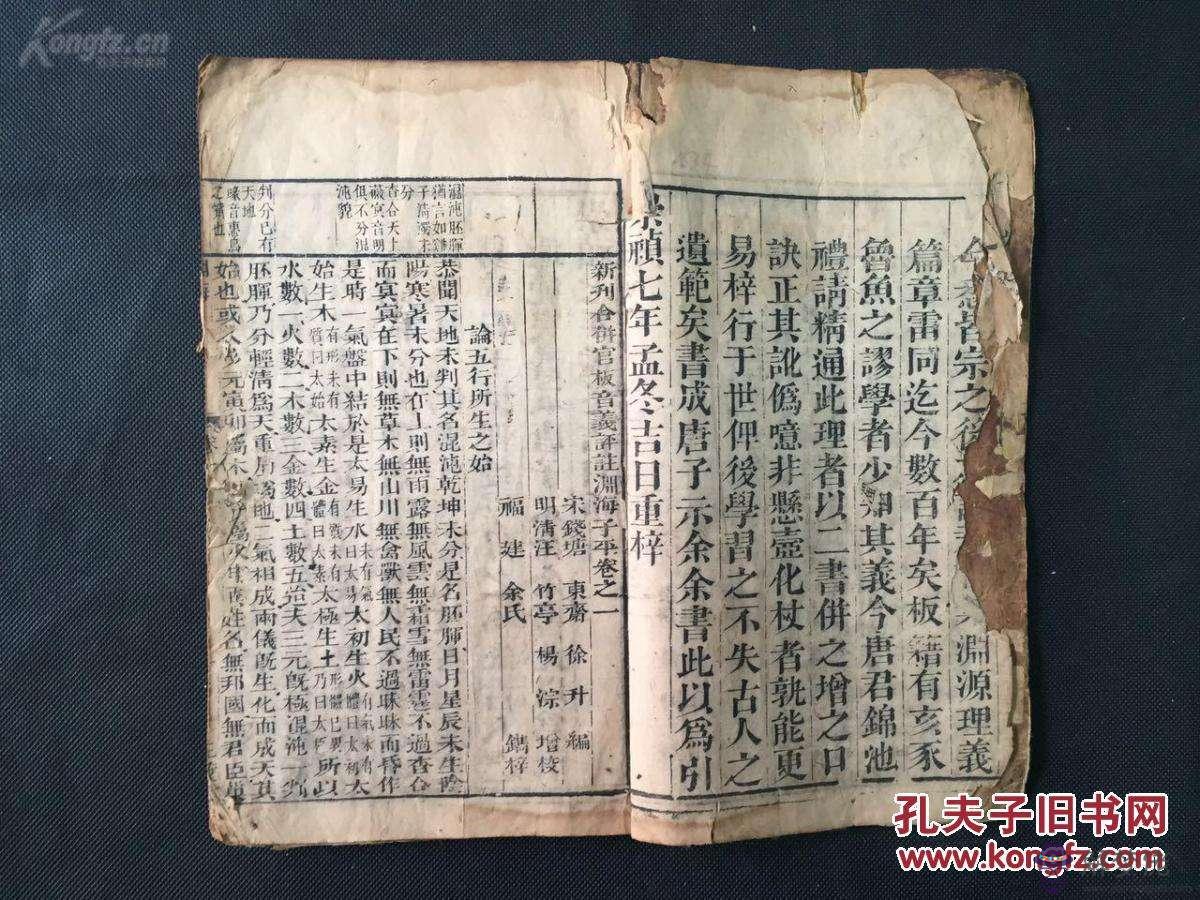 Kongfz.cn
淵源理義
篇章雷同迄今數百年矣板籍有亥豕
魯魚之謬學者少明其義今唐君錦池
禮請精通此理者以二書併之增之口
訣正其訛僞噫非懸壺化杖者孰能更
易梓行于世俾後學習之不失古人之
遺範矣書成唐子示余余書此以爲引
崇禎七年孟冬吉日重梓
新刊合併官板音義評註淵海子平卷之一
宋錢塘 東齋 徐升 編
明清江 竹亭 楊淙 增校
福建 余氏 鐫梓
論五行所生之始
恭聞天地未判其名混沌乾坤未分是名胚腪日月星辰未生陰
陽寒暑未分也在上則無雨露無風雲無霜雪無雷霆不過杳合
而冥冥在下則無草木無山川無禽獸無人民不過昧昧而昏作
是時一氣盤中結於是太易生水未有氣曰太易太初生火有氣未有體曰太初太
始生木有形未有質曰太始太素生金有質未有體曰太素太極生土形體已具乃曰太極所以
水數一火數二木數三金數四土數五迨夫三元旣極混沌一判
胚腪乃分輕清爲天重濁爲地二氣相成兩儀旣生化而成天其
始也或
姓名無邦國無君臣
混沌胚腪
俱不分混
沌貌
判分已有
天地
孔夫子旧书网
www.kongfz.com